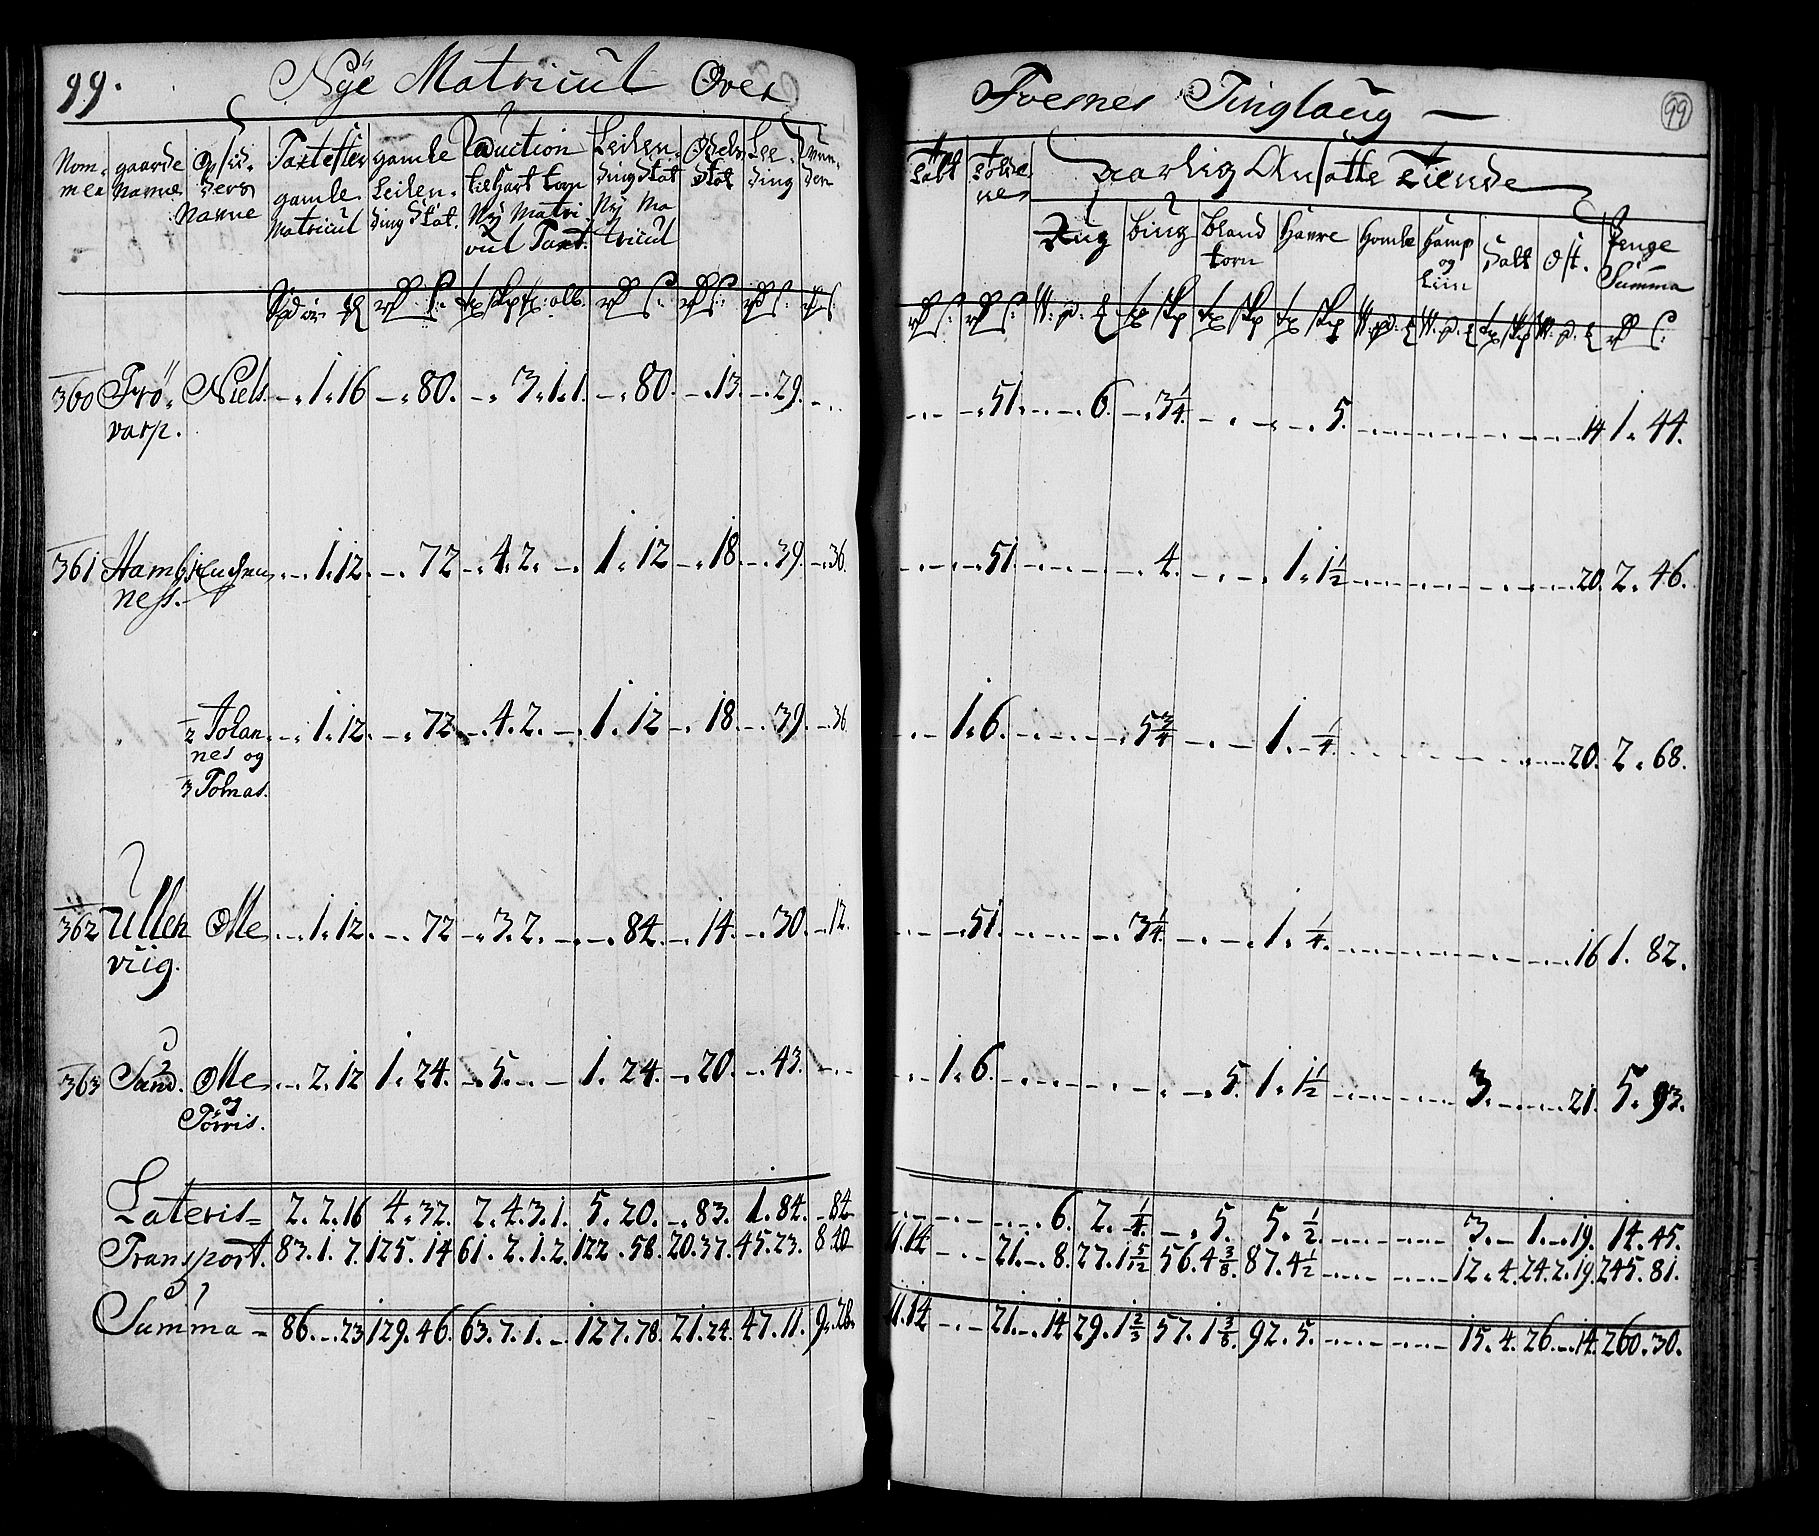 99. Nÿe Matricul Over Foesnes Tinglaug —
99
Nom- gaarde Opsid- Taxt efter gamle Leilen- Odels Lee-
mer Navne ders gamle Leilen- till hart korn ding Skat Skat ding
Navne Matricul ding Skat. Nÿ Matri- Nÿ Ma
cul Taxt. tricul
aarlig Ansatte Tiende
Rug bing bland Havre Homle Hamp Salt Ost. Penge
korn og Summa
Liin
360 Frö- Niels. - . 1. 16 - . 80. - . 3. 1. 1. - . 80. - . 13. - . 29. - . . - . 51. 6. - . 3 1/4. 5. 14 1. 44.
varp.
361 Hamb 1. 12. - . 72 - . 4. 2. - 1. 12 - . 18. - . 39. - . 36. 51. 4. 1. 1 1/2 20. 2. 46.
ness.
1/2 Johan- 1. 12. - . 72 - . 4. 2. - 1. 12 - . 18. - . 39. - . 36 1. 6. 5 3/4 1. - 1/4. 20. 2. 68.
nes og
Tomas.
362 Ullen Olle 1. 12. - . 72 - . 3. 2. - . 84. - . 14. - . 30. - . 12. 51. 3 1/4. 1. 1/4. 16 1. 82.
viig.
363 Sund. Olle 2. 12 1. 24. - . 5. - . - 1. 24. - . 20. - . 43. 1. 6. 5. 1. 1 1/2 3. 21. 5. 93.
og
Törris.
Lateris = 2. 2. 16 4. 32. 2. 4. 3. 1. 5. 20. - . 83. 1. 84. - 84 6. 2. 1/4. - . 5. 5. 1/2. 3. - 1. - . 19. 14. 45.
Transport. 83. 1. 7. 125. 14 61. 2. 1. 2. 122. 58. 20. 37. 45. 23. 8 40 11. 14 21. - . 8. 27. 1 5/12 56. 4 3/8. 87. 4 1/2 12. 4. 24. 2. 19. 245. 81.
Summa - 86. - . 23 129. 46. 63. 7. 1. - 127. 78. 21. 24. 47. 11. 9. 28. 11. 14 21. - . 14 29. 1 2/3 57. 1 3/8. 92. 5. 15. 4. 26. - . 14. 260. 30.